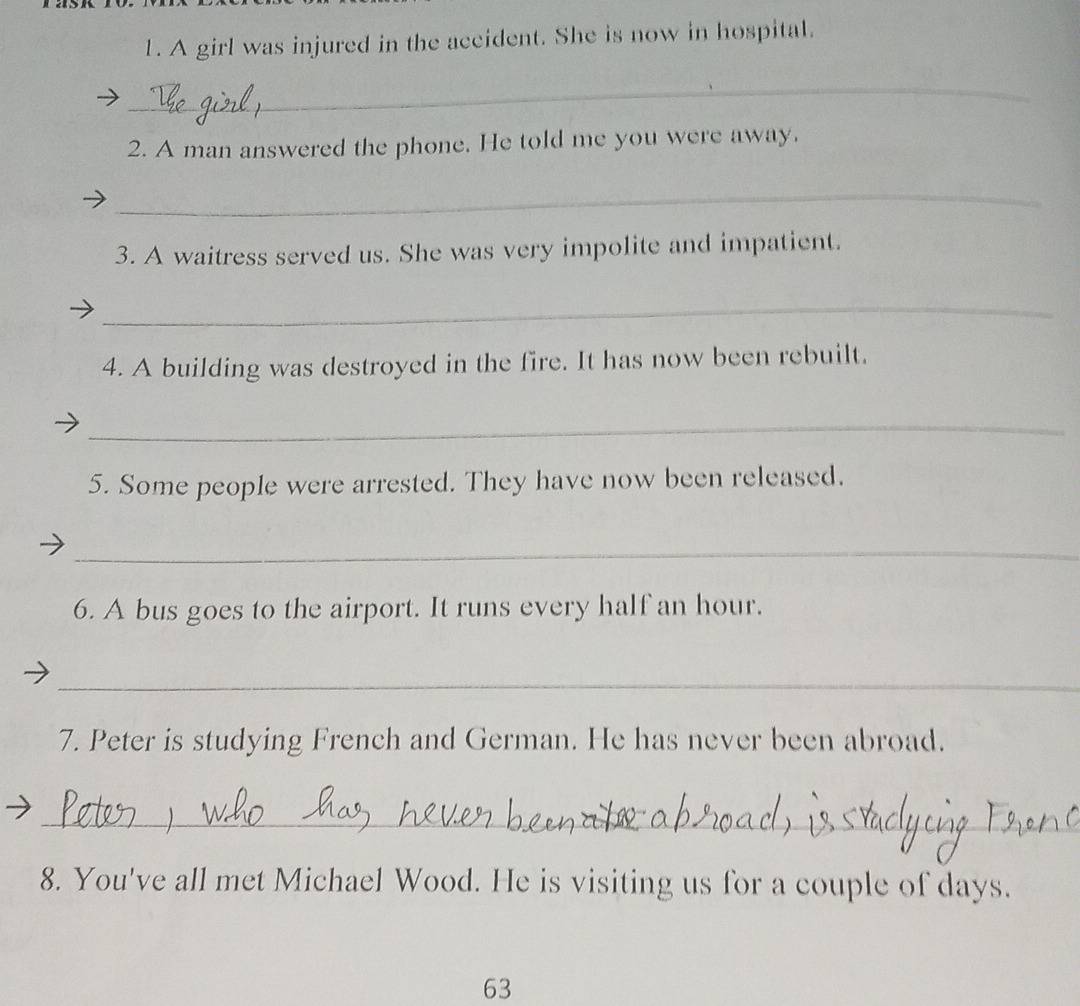 1. A girl was injured in the accident. She is now in hospital.
→ The girl,
2. A man answered the phone. He told me you were away.
→
3. A waitress served us. She was very impolite and impatient.
→
4. A building was destroyed in the fire. It has now been rebuilt.
→
5. Some people were arrested. They have now been released.
→
6. A bus goes to the airport. It runs every half an hour.
→
7. Peter is studying French and German. He has never been abroad.
→ Peter, who has never been abroad, is studying Frenc
8. You've all met Michael Wood. He is visiting us for a couple of days.
63